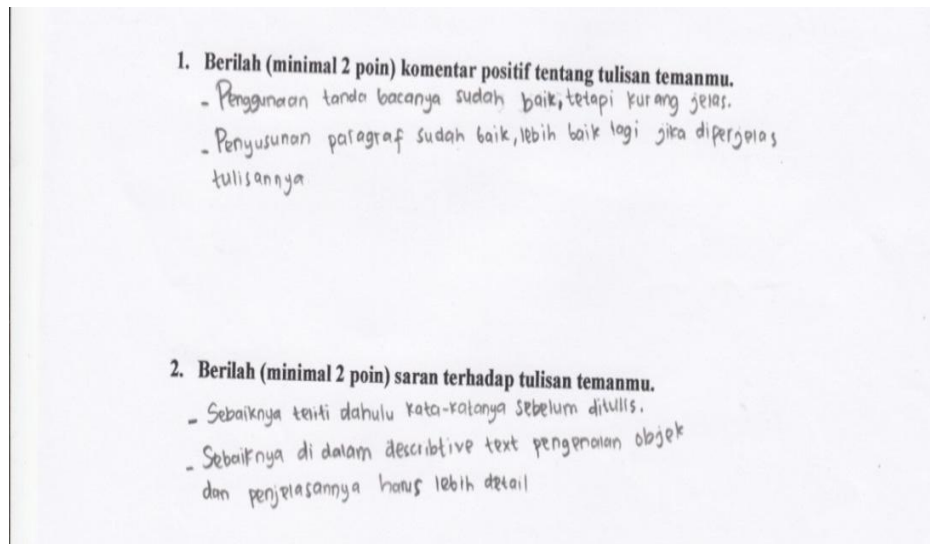 1. Berilah (minimal 2 poin) komentar positif tentang tulisan temanmu.
- Penggunaan tanda bacanya sudah baik, tetapi kurang jelas.
- Penyusunan paragraf sudah baik, lebih baik lagi jika diperjelas
tulisannya
2. Berilah (minimal 2 poin) saran terhadap tulisan temanmu.
- Sebaiknya teliti dahulu kata-katanya sebelum ditulis.
- Sebaiknya di dalam describtive text pengenalan objek
dan penjelasannya harus lebih detail